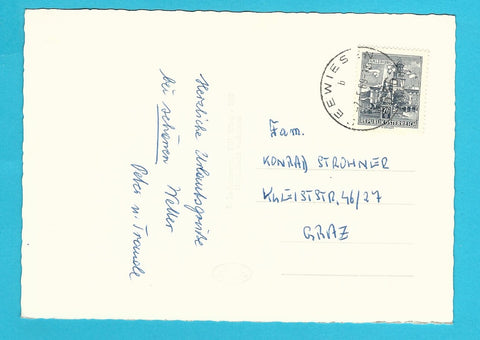 Herzliche Urlaubsgrüße
bei schönem Wetter
Peter u. Traude
REPUBLIK ÖSTERREICH
Fam.
KONRAD STROHNER
KLEISTSTR. 46/27
GRAZ